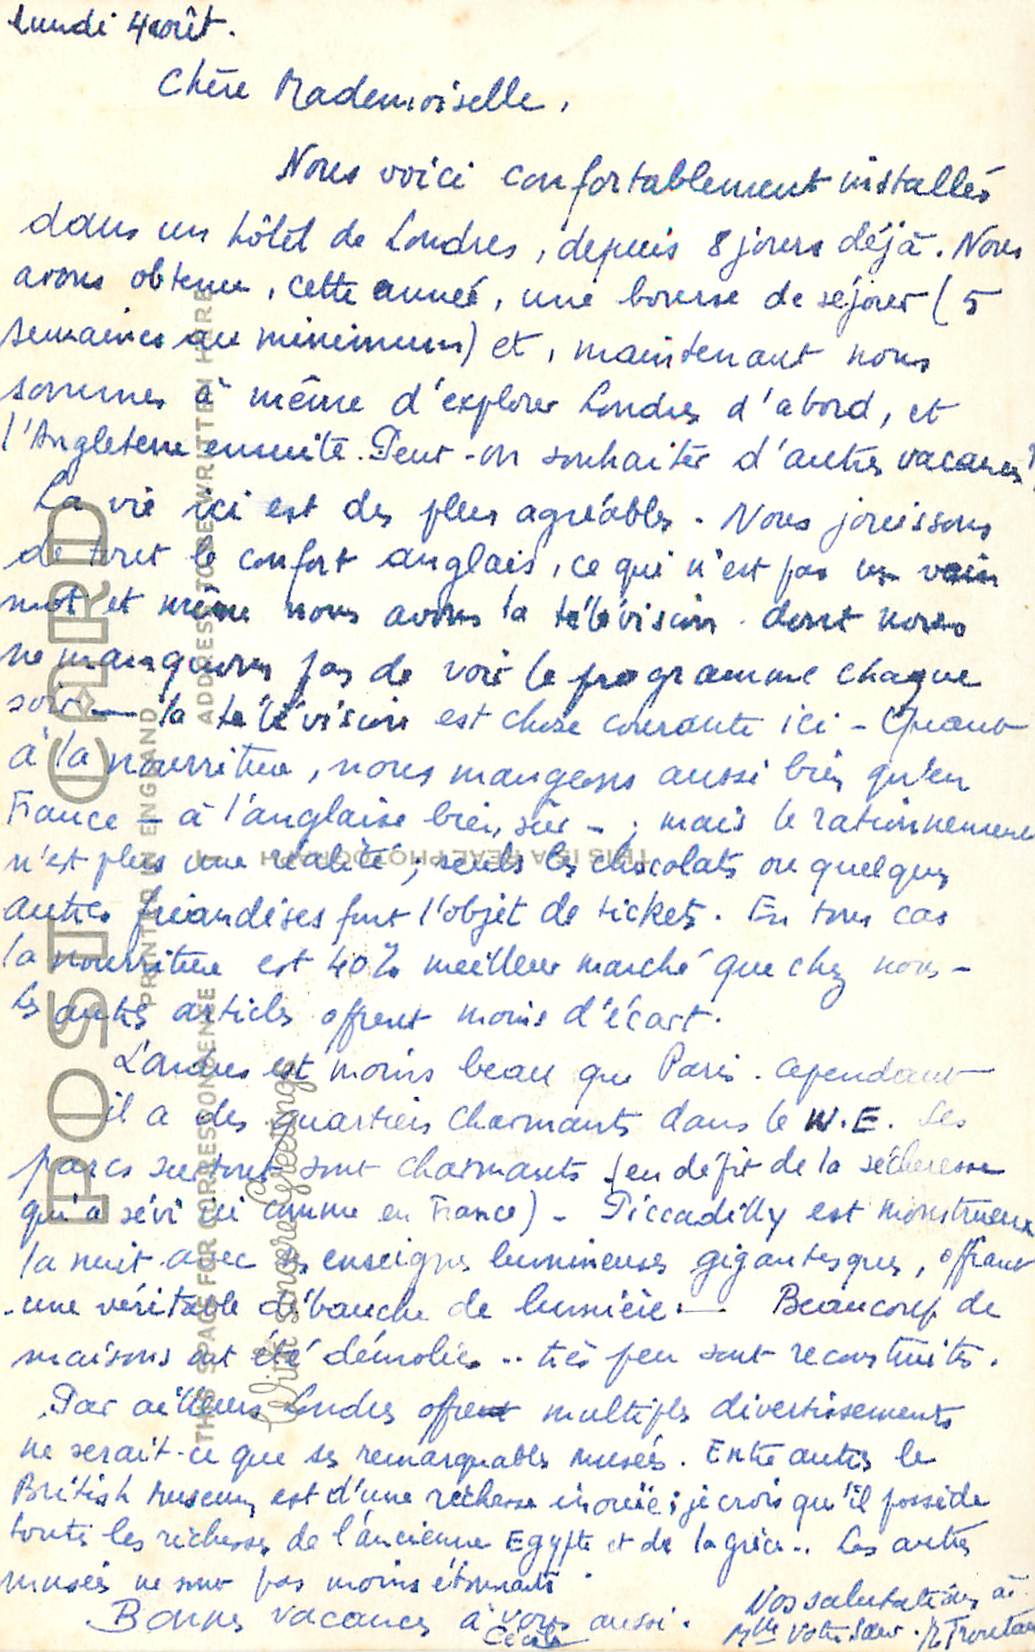 Lundi 4 août.
Chère Mademoiselle,
Nous voici confortablement installés
dans un hôtel de Londres, depuis 8 jours déjà. Nous
avons obtenu, cette année, une bourse de séjour (5
semaines au minimum) et, maintenant nous
sommes à même d'explorer Londres d'abord, et
l'Angleterre ensuite. Peut-on souhaiter d'autres vacances?
La vie ici est des plus agréables. Nous jouissons
de tout le confort anglais, ce qui n'est pas un vain
mot et même nous avons la télévision dont nous
ne manquons pas de voir le programme chaque
soir — la télévision est chose courante ici - Quant
à la nourriture, nous mangeons aussi bien qu'en
France - à l'anglaise bien sûr - ; mais le rationnement
n'est plus une réalité ; seuls les chocolats ou quelques
autres friandises font l'objet de tickets. En tous cas
la nourriture est 40% meilleur marché que chez nous -
Les autres articles offrent moins d'écart.
Londres est moins beau que Paris. Cependant
il a des quartiers charmants dans le W.E. Les
parcs surtout sont charmants (en dépit de la sécheresse
qui a sévi ici comme en France) - Piccadilly est monstrueux
la nuit avec ses enseignes lumineuses gigantesques, offrant
une véritable débauche de lumière. — Beaucoup de
maisons ont été démolies .. très peu sont reconstruites.
Par ailleurs Londres offre multiples divertissements
ne serait-ce que ses remarquables musées. Entre autres le
British Museum, est d'une richesse inouïe ; je crois qu'il possède
toutes les richesses de l'ancienne Egypte et de la Grèce.. Les autres
musées ne sont pas moins étonnants.
Bonnes vacances à vous aussi.
Cécile
Nos salutations à
Mlle votre sœur.
POST CARD
PRINTED IN ENGLAND
THIS SPACE FOR CORRESPONDENCE
ADDRESS TO BE WRITTEN HERE
THIS IS A REAL PHOTOGRAPH
With Sincere Greetings